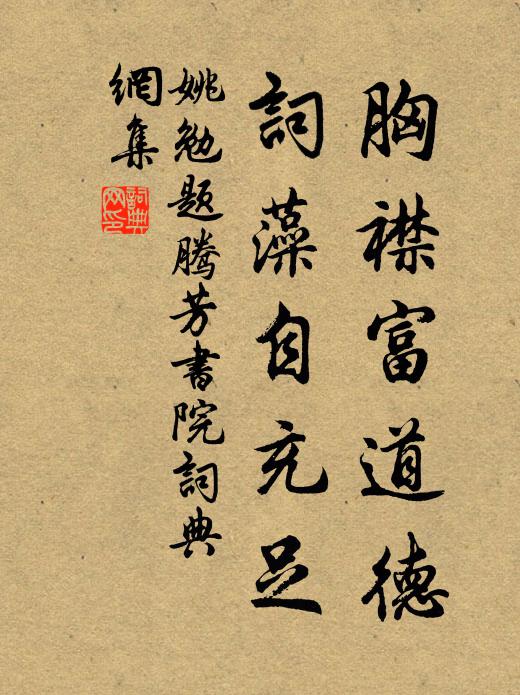 胸襟富道德
詞藻自充足
姚勉題騰芳書院詞典
網集
詞典
网印